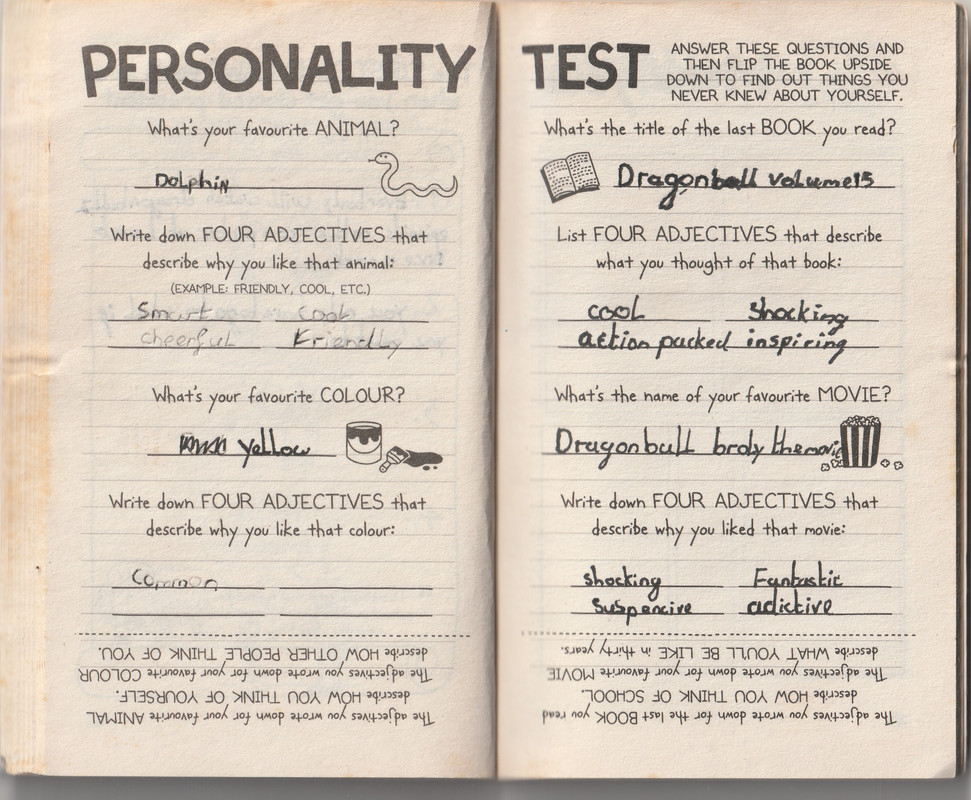 PERSONALITY
What's your favourite ANIMAL?
DoLphin
Write down FOUR ADJECTIVES that
describe why you like that animal:
(EXAMPLE: FRIENDLY, COOL, ETC.)
Smart Cool
cheerful Friendly
What's your favourite COLOUR?
yellow
Write down FOUR ADJECTIVES that
describe why you like that colour:
Common
The adjectives you wrote down for your favourite ANIMAL
describe HOW YOU THINK OF YOURSELF.
The adjectives you wrote down for your favourite COLOUR
describe HOW OTHER PEOPLE THINK OF YOU.
TEST
ANSWER THESE QUESTIONS AND
THEN FLIP THE BOOK UPSIDE
DOWN TO FIND OUT THINGS YOU
NEVER KNEW ABOUT YOURSELF.
What's the title of the last BOOK you read?
Dragonball volume15
List FOUR ADJECTIVES that describe
what you thought of that book:
cool Shocking
action packed inspiring
What's the name of your favourite MOVIE?
Dragonball broly themovie
Write down FOUR ADJECTIVES that
describe why you liked that movie:
shocking Fantastic
Suspencive adictive
The adjectives you wrote down for the last BOOK you read
describe HOW YOU THINK OF SCHOOL.
The adjectives you wrote down for your favourite MOVIE
describe WHAT YOU'LL BE LIKE in thirty years.